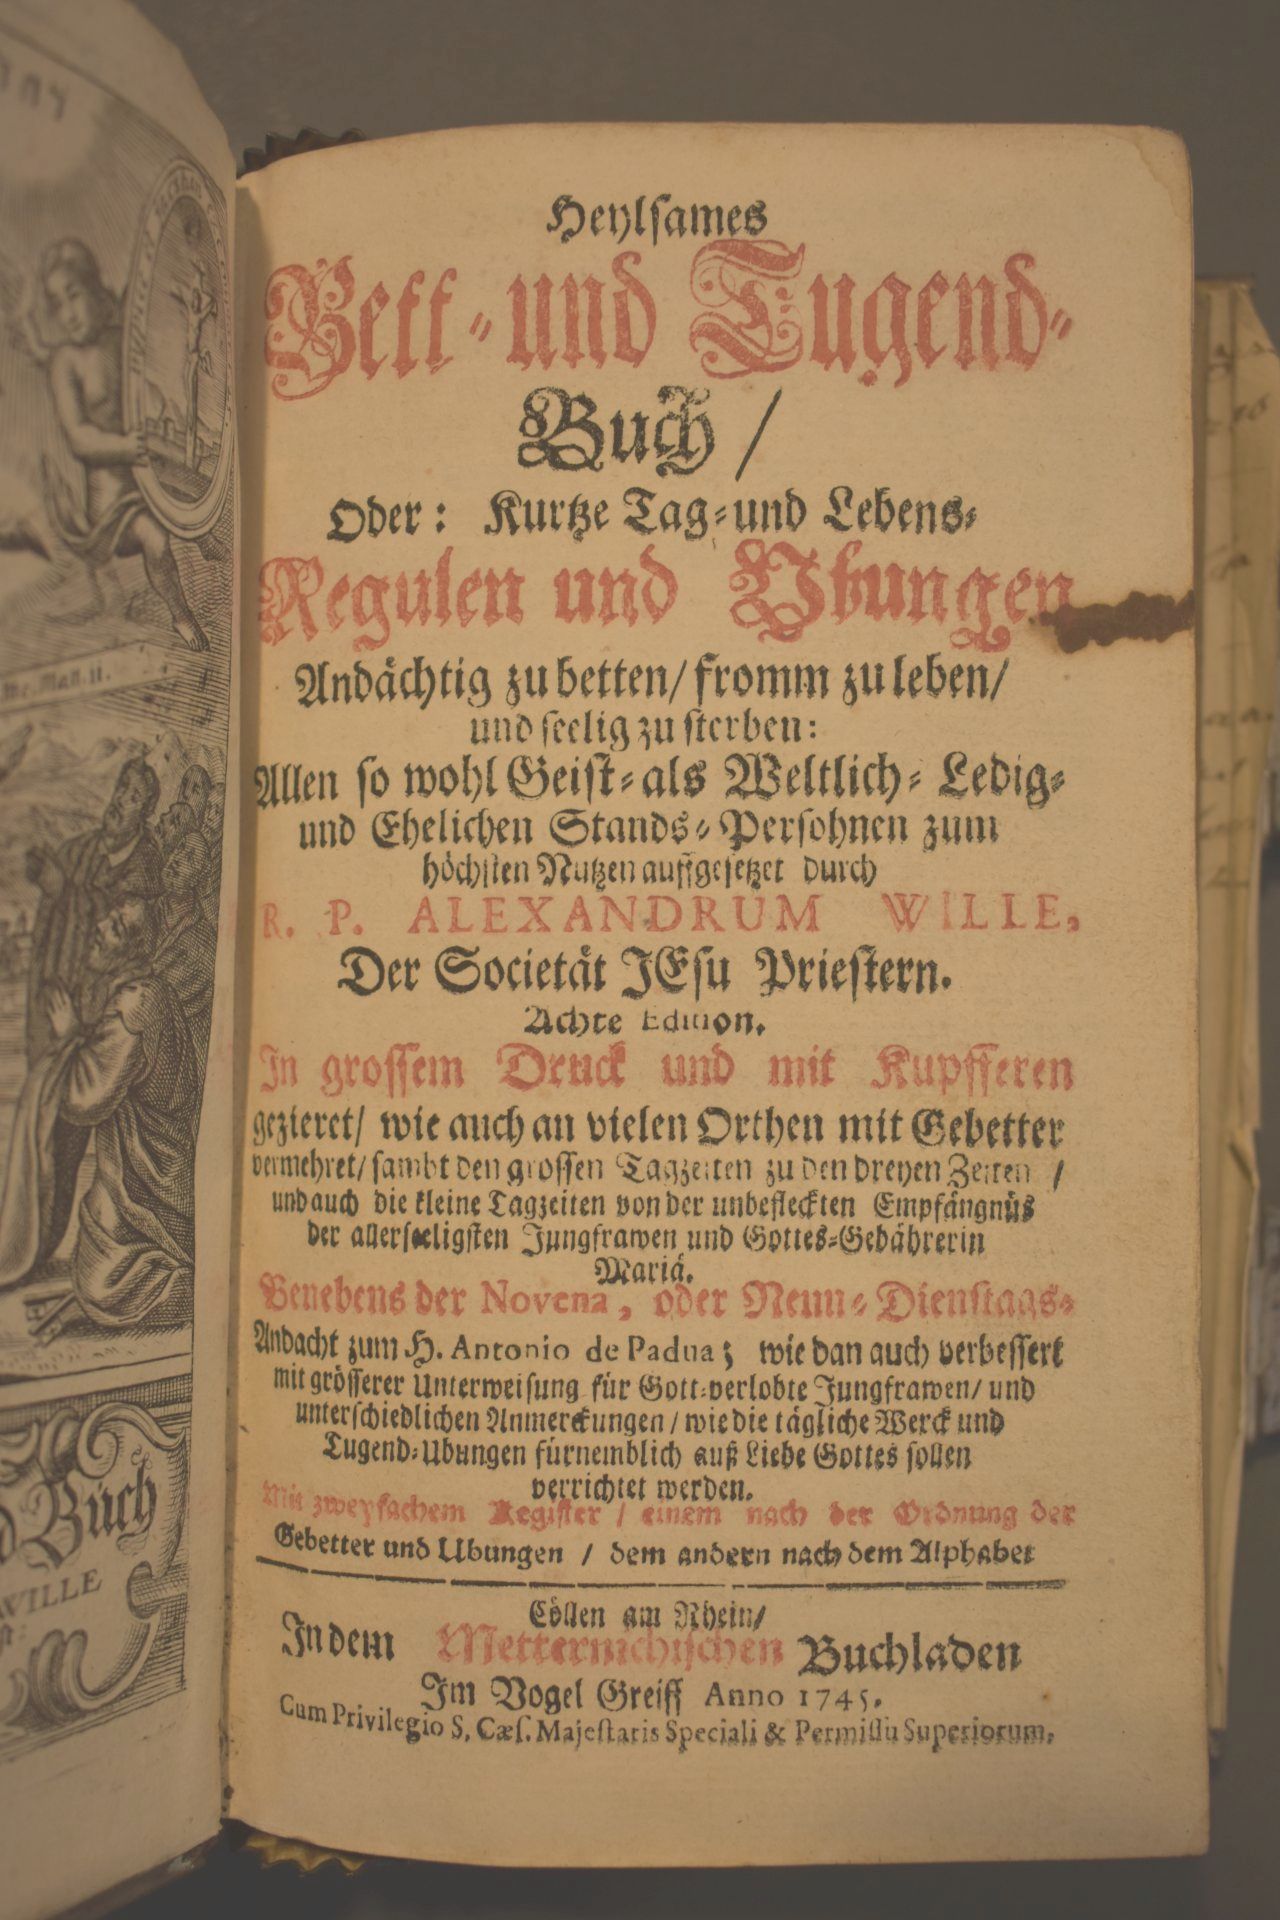 Heylsames
Bett-und Tugend-
Buch /
Oder: Kurtze Tag-und Lebens-
Regulen und Ubungen
Andächtig zu betten/ fromm zu leben/
und seelig zu sterben:
Allen so wohl Geist-als Weltlich-Ledig-
und Ehelichen Stands-Persohnen zum
höchsten Nutzen auffgesetzet durch
R. P. ALEXANDRUM WILLE,
Der Societät JEsu Priestern.
Achte Edition.
In grossem Druck und mit Kupfferen
gezieret/ wie auch an vielen Orthen mit Gebetter
vermehret/ sambt den grossen Tagzeiten zu den dreyen Zeiten /
und auch die kleine Tagzeiten von der unbefleckten Empfängnüs
der allerseeligsten Jungfrawen und Gottes-Gebährerin
Mariä.
Benebens der Novena, oder Neun-Dienstags-
Andacht zum H. Antonio de Padua; wie dan auch verbessert
mit grösserer Unterweisung für Gott-verlobte Jungfrawen/ und
unterschiedlichen Anmerckungen / wie die tägliche Werck und
Tugend-Ubungen fürnemblich auß Liebe Gottes sollen
verrichtet werden.
Mit zweyfachem Register / einem nach der Ordnung der
Gebetter und Ubungen / dem andern nach dem Alphabet
Cöllen am Rhein/
In dem Metternichischen Buchladen
Im Vogel Greiff Anno 1745.
Cum Privilegio S. Cæs. Majestatis Speciali & Permissu Superiorum.
Buch
WILLE